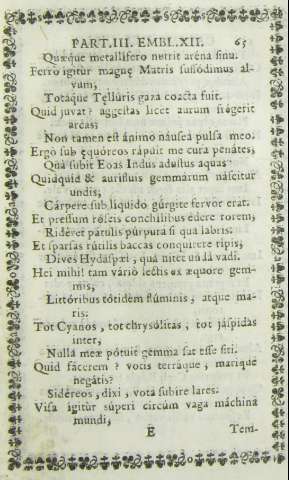 PART. III. EMBL. XII. 65
Quæque metallifero nutrit aréna sinu.
Ferro igitur magnę Matris suffódimus al-
vum;
Totáque Tęllúris gaza coacta fuit.
Quid juvat? aggestas licet aurum frégerit
arcas;
Non tamen est ánimo náusea pulsa meo.
Ergò sub ęquóreos rápuit me cura penátes,
Quà subit Eoas Indus adustus aquas
Quidquid & aurifluis gemmárum náscitur
undis,
Cárpere sub líquido gúrgite fervor erat.
Et pressum róseis conchílibus édere rorem,
Ridéret pátulis púrpura si qua labris:
Et sparsas rútilis baccas conquírere ripis,
Dives Hydáspæi, quà nitet unda vadi.
Hei mihi! tam vário lectis ex æquore gem-
mis,
Littóribus tótidem flúminis, atque ma-
ris:
Tot Cyanos, tot chrysólitas, tot jáspidas
inter,
Nulla meæ pótuit gemma sat esse siti.
Quid fácerem? votis terráque, maríque
negátis?
Sidéreos, dixi, vota subíre lares.
Visa igitur súperi circùm vaga máchina
mundi,
E Tem-